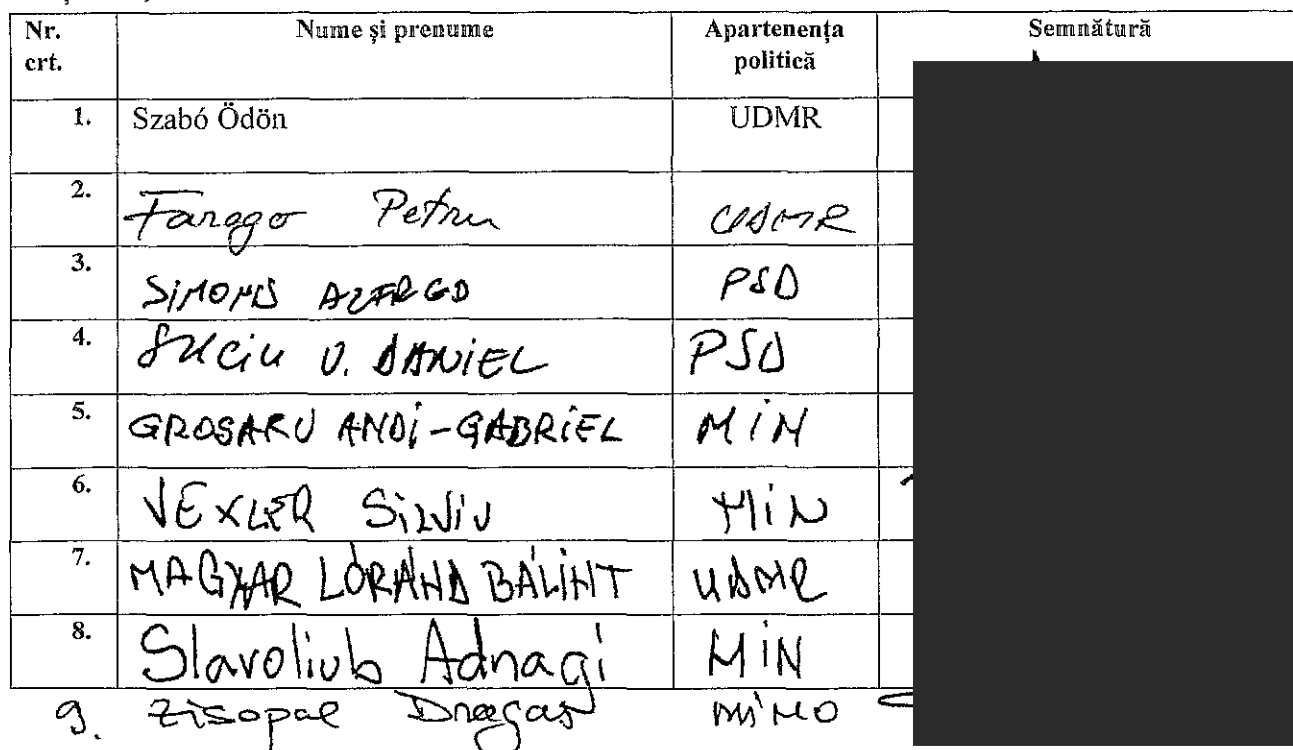 Nr. crt. Nume și prenume Apartenența politică Semnătură
1. Szabó Ödön UDMR
2. Farago Petru UDMR
3. SIMONIS ALFRED PSD
4. Suciu V. DANIEL PSD
5. GROSARU ANDI-GABRIEL MIN
6. VEXLER SILVIU MIN
7. MAGYAR LÓRÁND BÁLINT UDMR
8. Slavoliub Adnagi MIN
9. Zisopol Dragoș